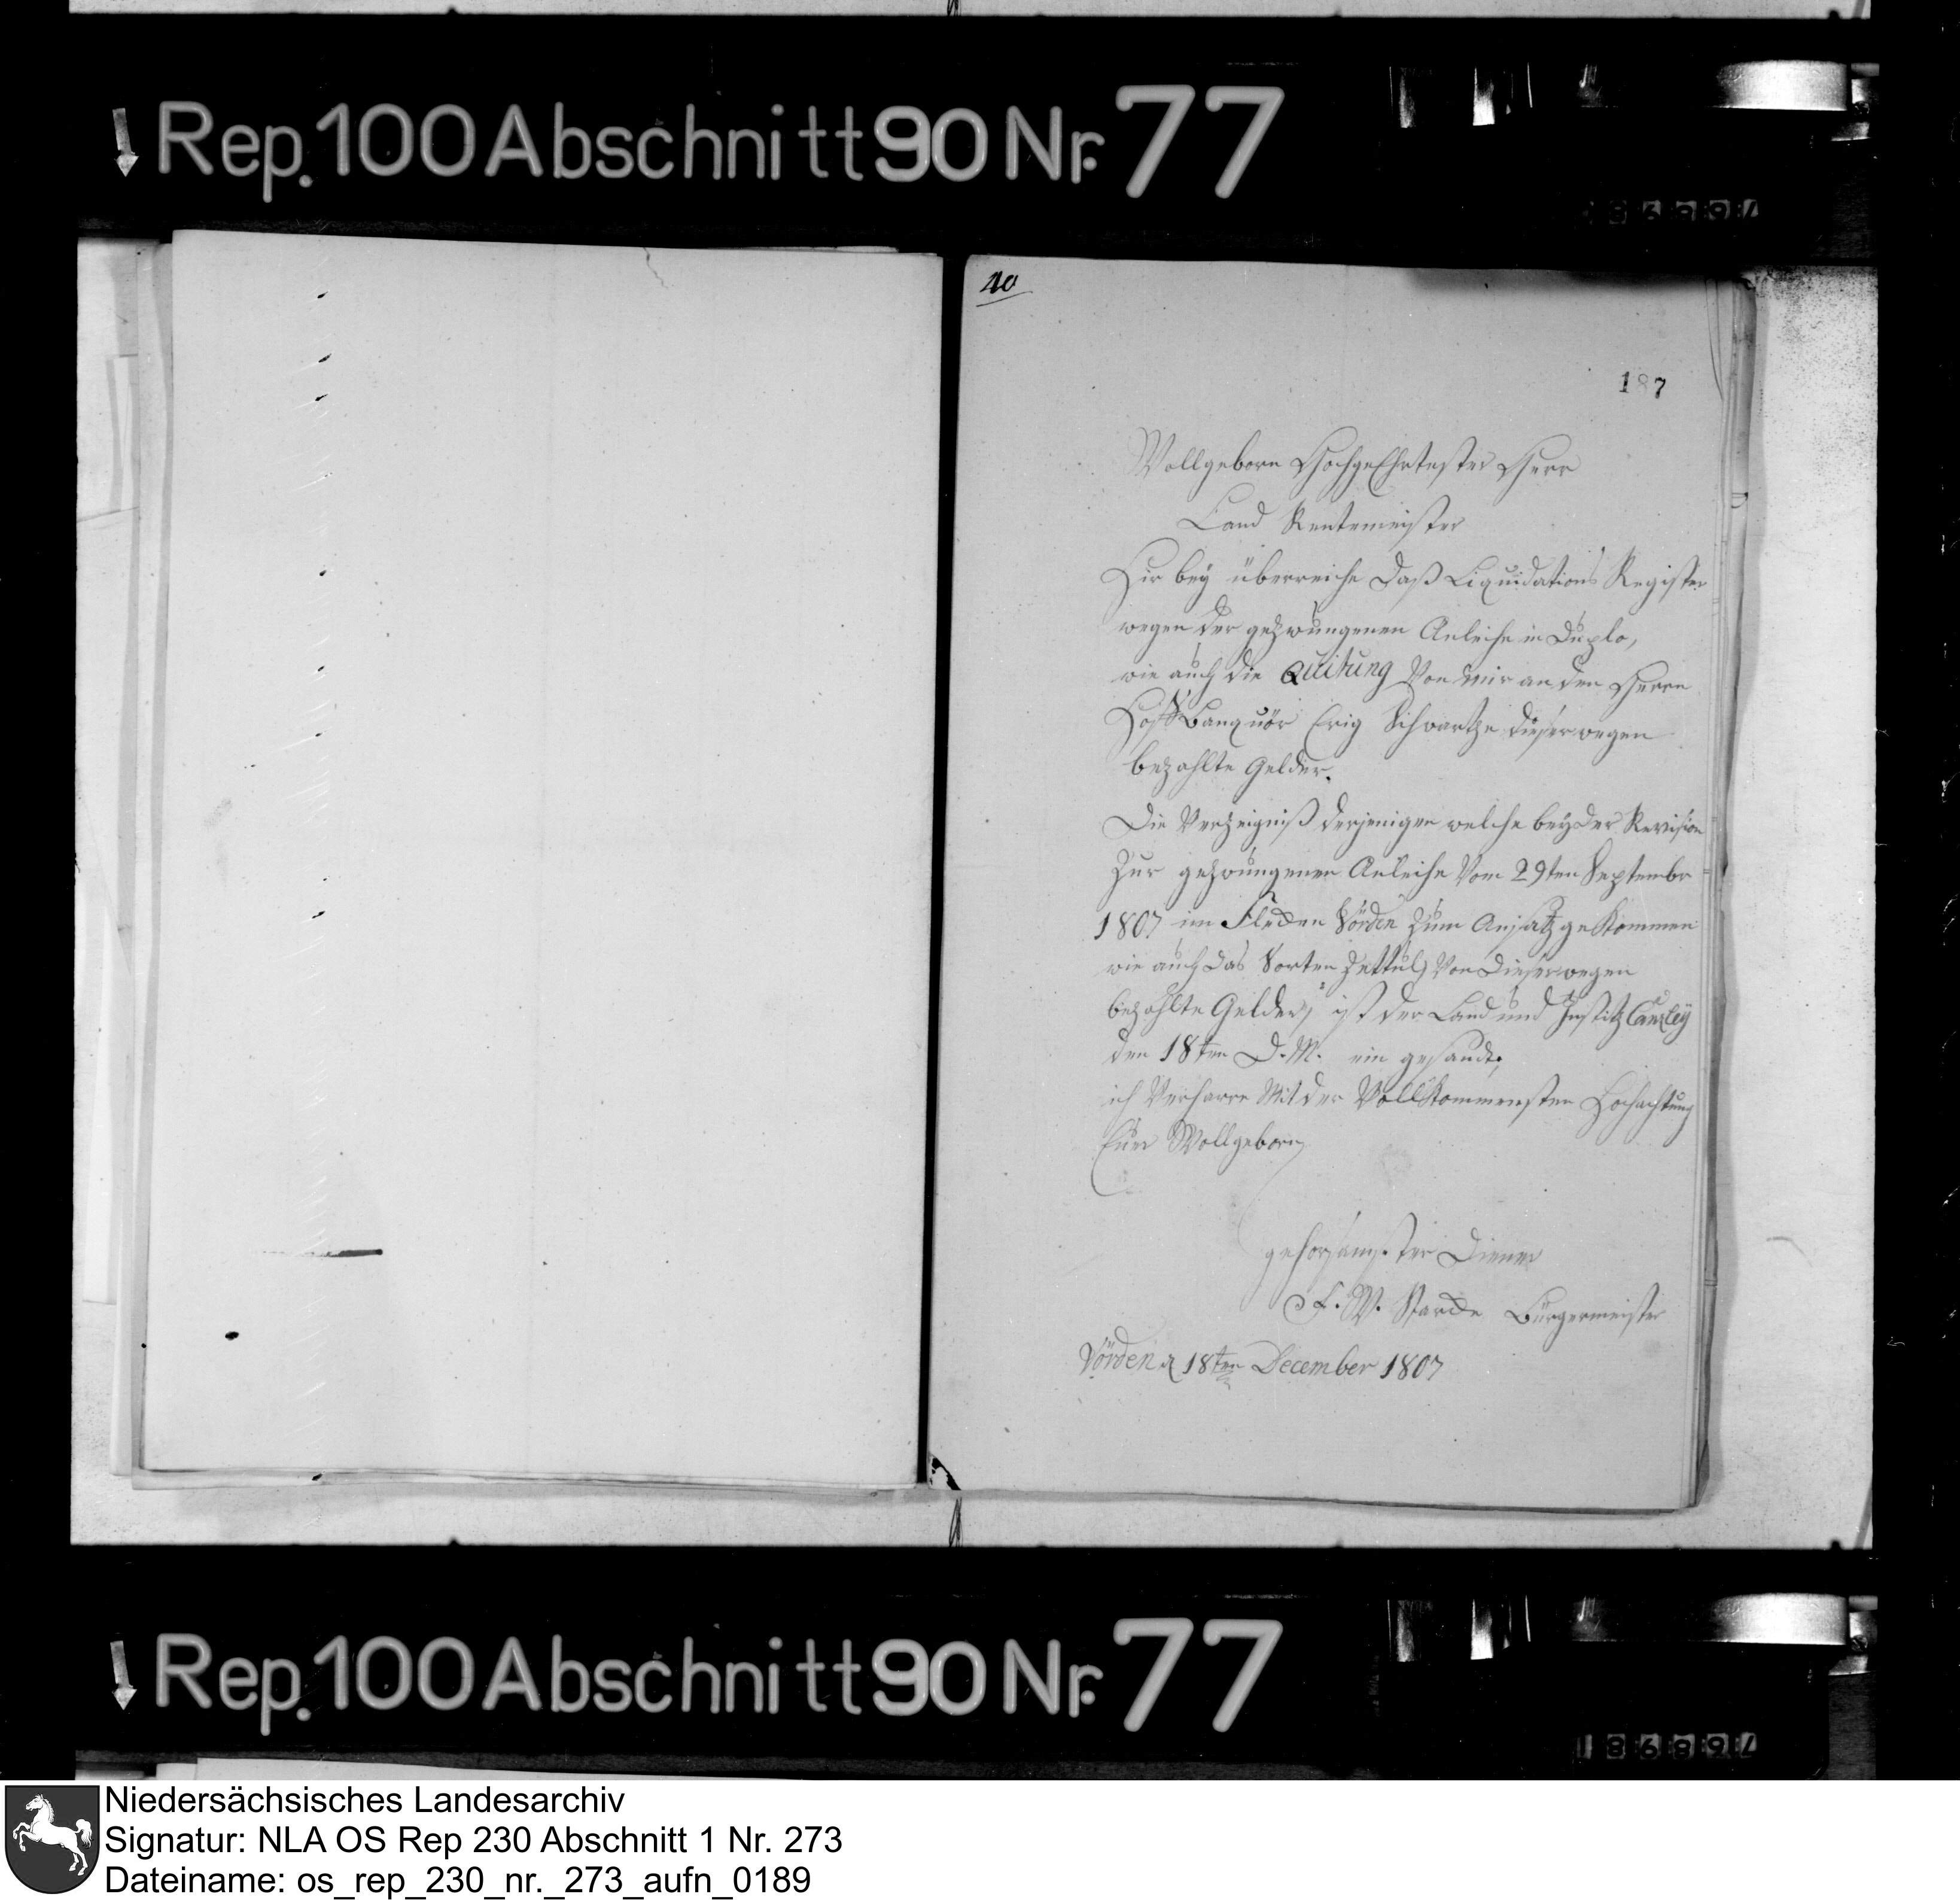 Rep. 100 Abschnitt 90 Nr. 77
40
187
Wollgeborn HochgeEhrtester Herr
Land Rentemeister
Hir bey überreiche daß Liquidations Register
wegen der gezwungenen Anleihe in Duplo,
wie auch die Quitung Von mir an den Herrn
Hoff Banquör Erig Schwartze dieserwegen
bezahlte Gelder.
Die Verzeigniß derjenigen welche bey der Revision
Zur gezwungenen Anleihe Vom 29ten Septembr
1807 im Flecken Vörden Zum Ansatz geKommen
wie auch das Sorten Zettul Von dieserwegen
bezahlte Gelder, ist der Land und Justitz Canzley
den 18ten D. M. ein gesandt,
ich Verharre Mit der VollKommensten Hochachtung
Euer Wollgeborn
gehorsamster Diener
F. W. Starcke Bürgermeister
Vörden d 18ten December 1807
Rep. 100 Abschnitt 90 Nr. 77
186897
Niedersächsisches Landesarchiv
Signatur: NLA OS Rep 230 Abschnitt 1 Nr. 273
Dateiname: os_rep_230_nr._273_aufn_0189